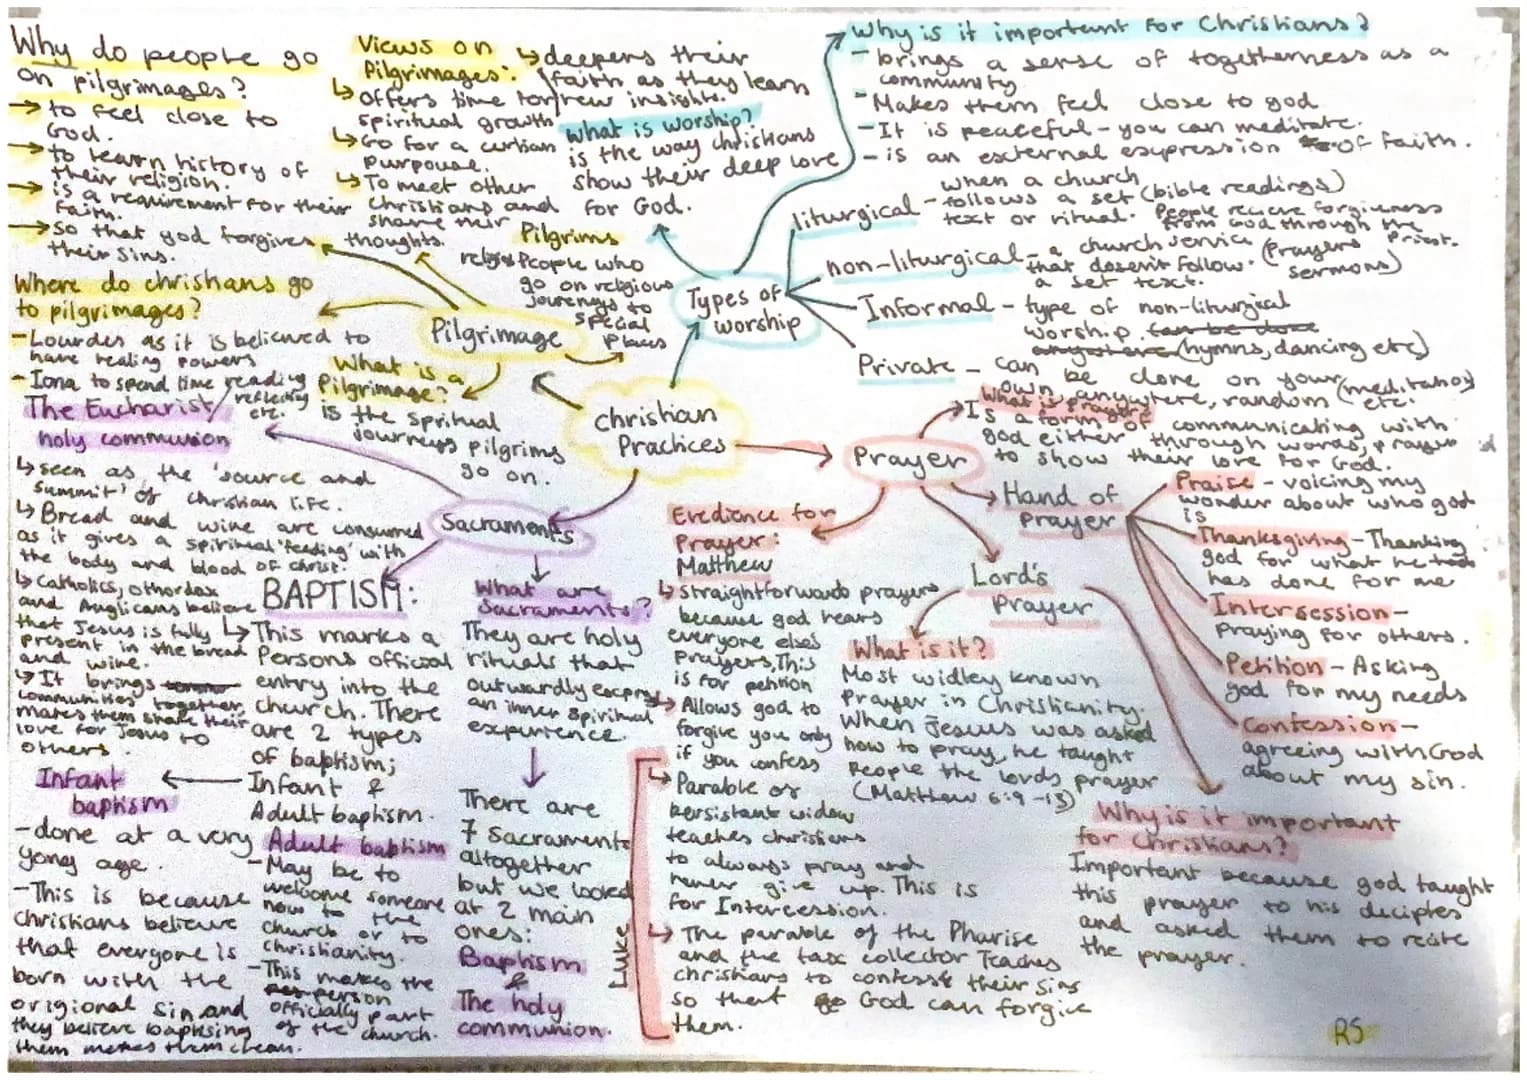 Why do people go
on pilgrimages?
→ to feel close to
God.
→ to learn history of
their religion.
→ is a requirement for their
faith.
→ so that god forgives
their sins.
Views on
Pilgrimages:
↳ deepens their
faith as they learn
new insights.
↳ offers time for
spiritual growth
↳ Go for a
purpouse.
↳ To meet other
Christians and
share their
thoughts.
What is worship?
is the way christians
show their deep love
for God.
Why is it important for Christians?
- brings a sense of togetherness as a
community.
- Makes them feel close to god
- It is peaceful - you can meditate.
- is an external expression of faith.
Types of
worship
liturgical - when a church
follows a set (bible readings)
text or ritual. People recieve forgiveness
from God through the
Priest.
non-liturgical - a church service (Prayers
that doesen't follow. sermons)
a set text.
Informal - type of non-liturgical
worship. can be done
anywhere (hymns, dancing etc)
Private - can be done on your
own, anywhere, random (meditation)
etc.
Pilgrims
People who
go on religious
journeys to
special
places
Pilgrimage
Where do chrishans go
to pilgrimages?
- Lourdes as it is believed to
have healing powers
- Iona to spend time reading
reflecting
etc.
What is a
Pilgrimage?
is the spritual
journeys pilgrims
go on.
Christian
Practices
The Eucharist/
holy communion
↳ seen as the 'source and
summit' of christian life.
↳ Bread and wine are consumed
as it gives a spiritual 'feeding' with
the body and blood of christ.
↳ Catholics, othordox
and Anglicans believe
that Jesus is fully
present in the bread
and wine.
↳ It brings
communities together,
makes them share their
love for Jesus to
others.
Sacraments
BAPTISM:
↳ This marks a
persons official
entry into the
church. There
are 2 types
of baptism;
Infant &
Adult baptism.
Infant
baptism
- done at a very
yong age.
- This is because
christians believe
that everyone is
born with the
origional sin and
they believe baptising
them makes them clean.
Adult baptism
- May be to
welcome someone
new to the
church or to
christianity.
- This makes the
person
officially part
of the church.
What are
Sacraments?
They are holy
rituals that
outwardly express
an inner spiritual
experience.
There are
7 Sacraments
altogether
but we looked
at 2 main
ones:
Baptism
&
The holy
communion.
Prayer
What is prayer?
Is a form of communicating with
god either through words, prayer
to show their love for God.
Evedience for
Prayer:
Matthew
↳ Straightforward prayers
because god hears
everyone else's
prayers, This
is for petition
↳ Allows god to
forgive you only
if you confess
Luke
↳ Parable of
persistant widow
teaches christians
to always pray and
never give up. This is
for Intercession.
↳ The parable of the Pharise
and the tax collector Teaches
christians to confess their sins
so that God can forgive
them.
Lord's
Prayer
What is it?
Most widley known
Prayer in Christianity.
When Jesus was asked
how to pray, he taught
people the lords prayer
(Matthew 6:9-13)
Why is it important
for Christians?
Important because god taught
this prayer to his deciples
and asked them to recite
the prayer.
Hand of
prayer
Praise - voicing my
wonder about who god
is
Thanksgiving - Thanking
god for what he
has done for me
Intersession -
Praying for others.
Petition - Asking
god for my needs
Confession -
agreeing with God
about my sin.
RS